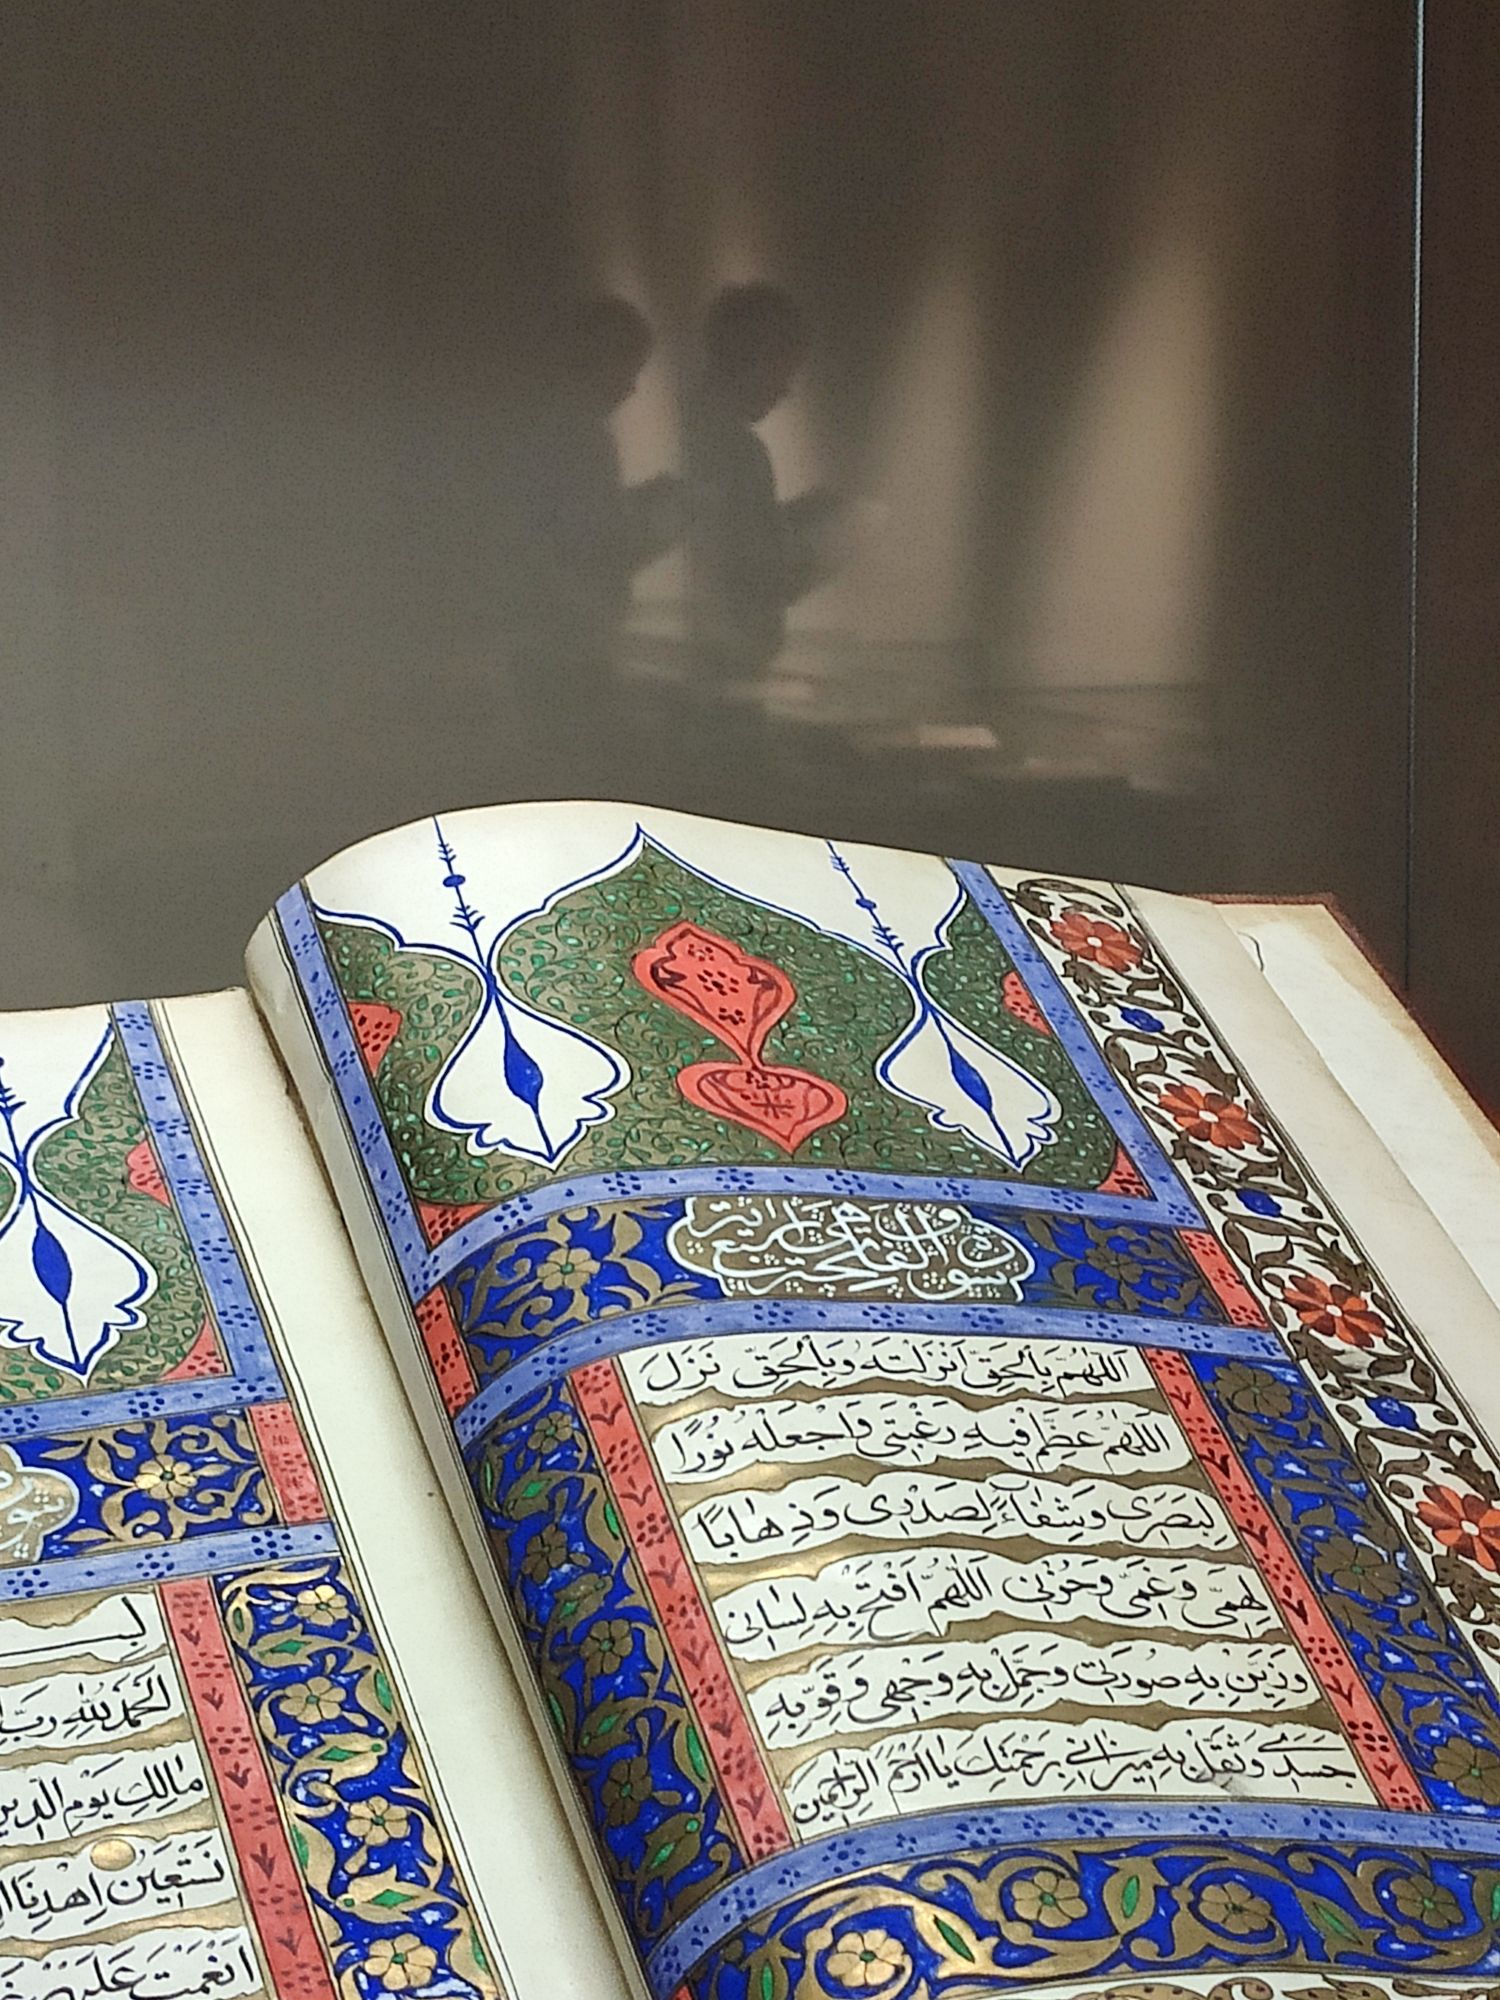 اَللّٰهُمَّ بِالْحَقِّ اَنْزَلْتَهُ وَبِالْحَقِّ نَزَلَ
اَللّٰهُمَّ عَظِّمْ فِيهِ رَغْبَتِي وَاجْعَلْهُ نُورًا
لِبَصَرِى وَشِفَاءً لِصَدْرِى وَذِهَابًا
لِهَمِّى وَغَمِّى وَحُزْنِى اَللّٰهُمَّ افْتَحْ بِهِ لِسَانِى
وَزَيِّنْ بِهِ صُورَتِى وَجَمِّلْ بِهِ وَجْهِى وَقَوِّ بِهِ
جَسَدِى وَثَقِّلْ بِهِ مِيزَانِى بِرَحْمَتِكَ يَا اَرْحَمَ الرَّاحِمِينَ
اَلْحَمْدُ لِلّٰهِ رَبِّ
مَالِكِ يَوْمِ الدِّينِ
نَسْتَعِينُ اِهْدِنَا
اَنْعَمْتَ عَلَيْهِمْ